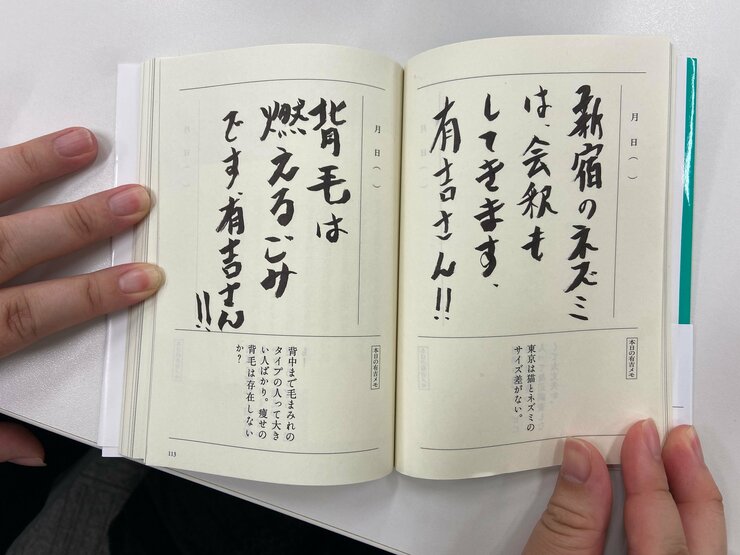 月 日（ ）
新宿のネズミ
は、会釈も
してきます、
有吉さん!!
本日の有吉メモ
東京は猫とネズミの
サイズ差がない。
月 日（ ）
背毛は
燃えるごみ
です、有吉さん
!!
本日の有吉メモ
背中まで毛まみれの
タイプの人って大き
い人ばかり。痩せの
背毛は存在しない
か？
113